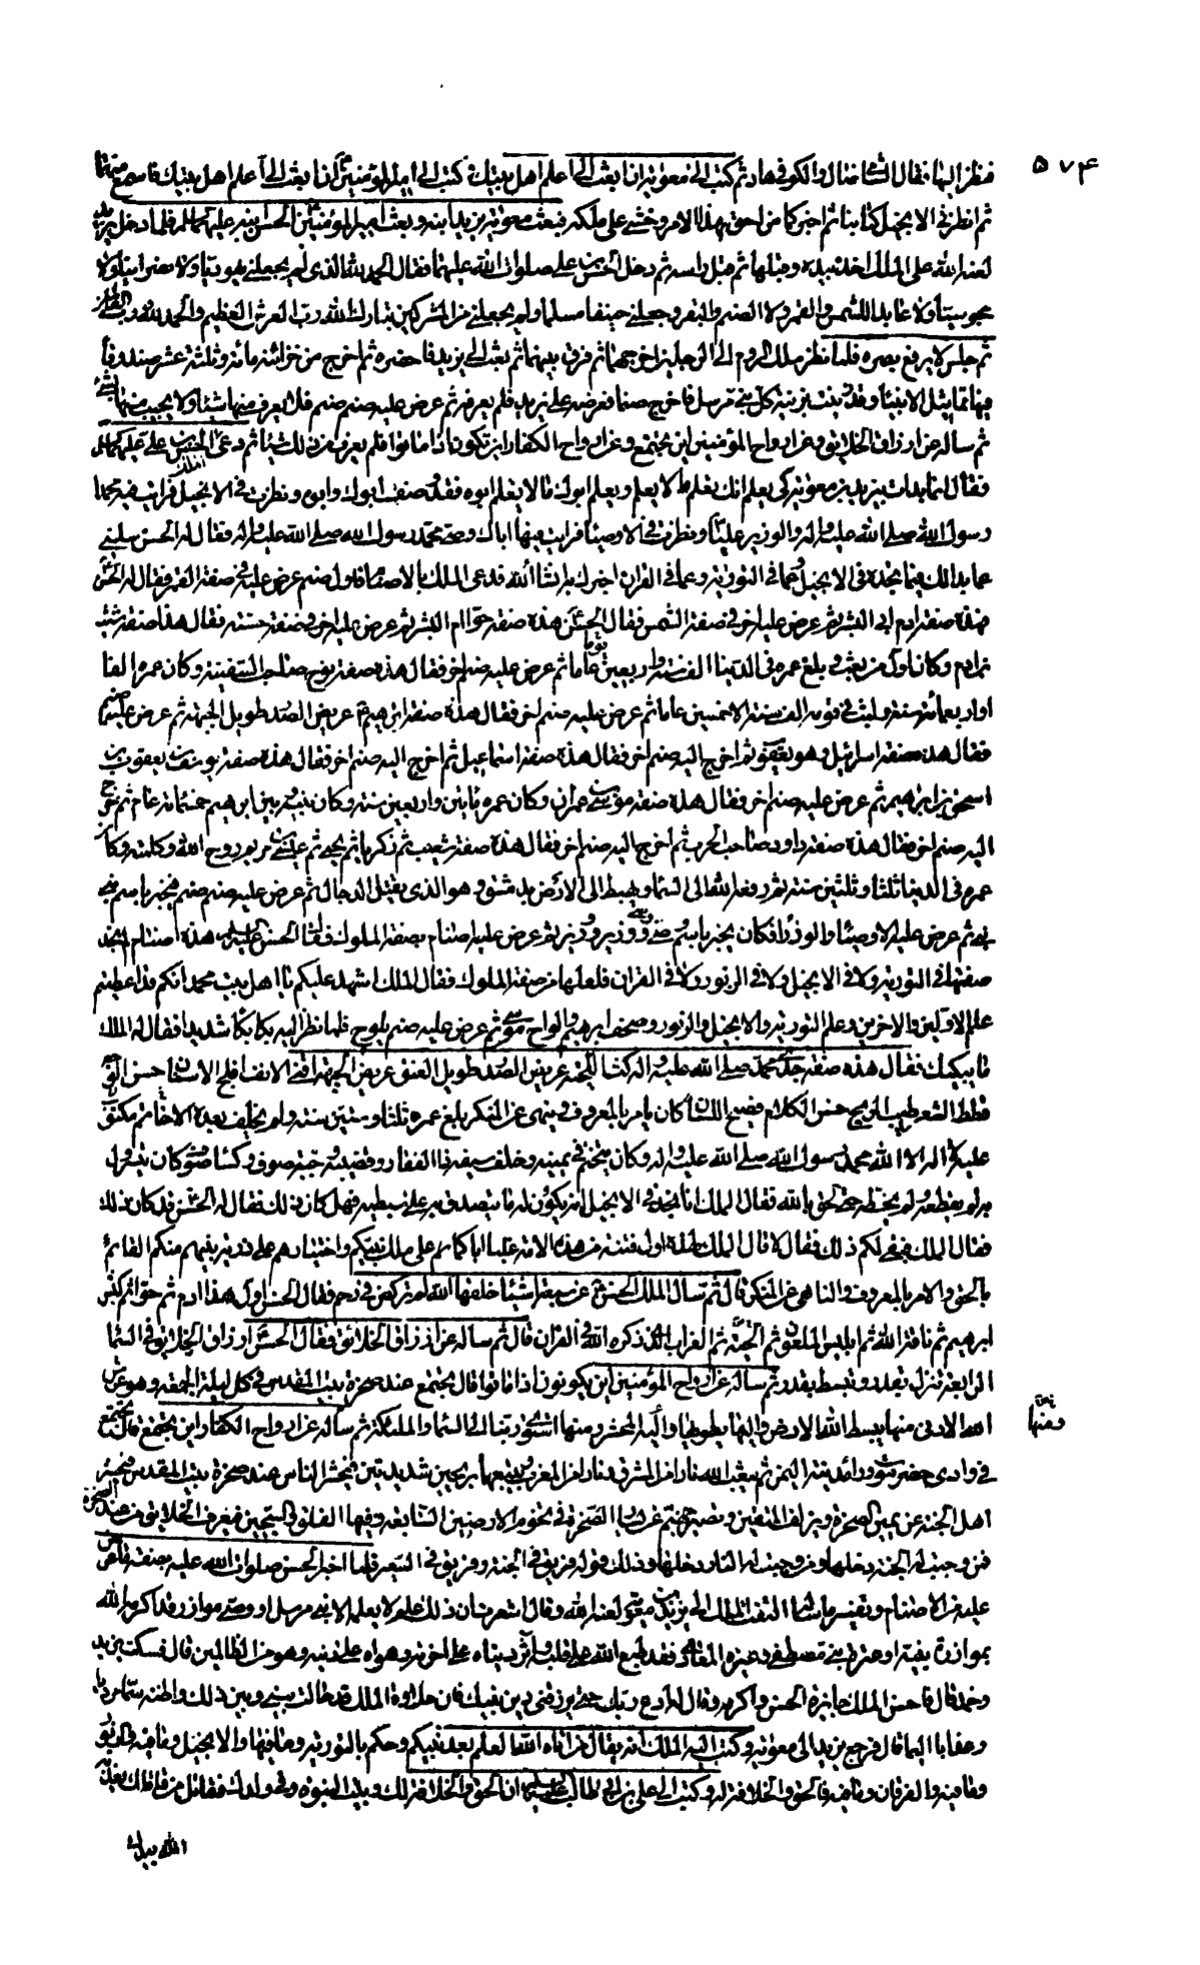 ۵۷۴
فنظر اليها فقال الشامى ضال والكوفى هاد ثم كتب الى معوية ان ابعث الى اعلم اهل بيتك وكتب الى امير المؤمنين ان ابعث الى اعلم اهل بيتك فاسمع منهما
ثم انظر فى الانجيل كتابنا ثم اخبركما من احق بهذا الامر وخشى على ملكه فبعث معوية يزيد ابنه وبعث امير المؤمنين الحسن ابنه عليهما السلام فلما دخل يزيد
لعنه الله على الملك اخذ بيده وقبلها ثم قبل راسه ثم دخل الحسن بن على صلوات الله عليهما فقال الحمد لله الذى لم يجعلنى يهوديا ولا نصرانيا ولا
مجوسيا ولا عابد الشمس والقمر ولا الصنم والبقر وجعلنى حنيفا مسلما ولم يجعلنى من المشركين تبارك الله رب العرش العظيم والحمد لله رب العالمين
ثم جلس لا يرفع بصره فلما نظر ملك الروم الى الرجلين اخرجهما ثم فرق بينهما ثم بعث الى يزيد فاحضره ثم اخرج من خزائنه مائة وثلثة عشر صندوقا
فيها تماثيل الانبياء وقد زينت بزينة كل نبى مرسل فاخرج صنما فعرضه على يزيد فلم يعرفه ثم عرض عليه صنم صنم فلا يعرف منها شيئا ولا يجيب منها بشئ
ثم ساله عن ارزاق الخلائق وعن ارواح المؤمنين اين تجتمع وعن ارواح الكفار اين تكون اذا ماتوا فلم يعرف من ذلك شيئا ثم دعى الملك الحسن بن على عليهما السلام
فقال انما بدات بيزيد بن معوية كى يعلم انك تعلم ما لا يعلم ويعلم ابوك ما لا يعلم ابوه فقد وصف ابوك وابوه ونظرت فى الانجيل فرايت فيه محمدا
رسول الله صلى الله عليه واله والوزير عليا ونظرت فى الاوصياء فرايت فيها اباك وصى محمد رسول الله صلى الله عليه واله فقال له الحسن سلنى
عما بدا لك فيما تجده فى الانجيل وعما فى التورية وعما فى القران اخبرك به انشاء الله فدعى الملك بالاصنام فاول صنم عرض عليه فى صفة القمر فقال له الحسن
فهذه صفة ادم ابى البشر ثم عرض عليه اخر فى صفة الشمس فقال الحسن هذه صفة حوا ام البشر ثم عرض عليه اخر فى صفة حسنة فقال هذه صفة شيث
بن ادم وكان اول من بعث وبلغ عمره فى الدنيا الف سنة واربعين عاما ثم عرض عليه صنم اخر فقال هذه صفة نوح صاحب السفينة وكان عمره الفا
واربعمائة سنة ولبث فى قومه الف سنة الا خمسين عاما ثم عرض عليه صنم اخر فقال هذه صفة ابرهيم عريض الصدر طويل الجبهة ثم عرض عليه صنم
فقال هذه صفة اسرائيل وهو يعقوب ثم اخرج اليه صنم اخر فقال هذه صفة اسماعيل ثم اخرج اليه صنم اخر فقال هذه صفة يوسف بن يعقوب بن
اسحق بن ابرهيم ثم عرض عليه صنم اخر فقال هذه صفة موسى بن عمران وكان عمره مايتين واربعين سنة وكان بينه وبين ابرهيم خمسمائة عام ثم اخرج
اليه صنم اخر فقال هذه صفة داود صاحب الحرب ثم اخرج اليه صنم اخر فقال هذه صفة شعيب ثم زكريا ثم يحيى ثم عيسى بن مريم روح الله وكلمته وكان
عمره فى الدنيا ثلثا وثلثين سنة ثم رفعه الله الى السماء ويهبط الى الارض بدمشق وهو الذى يقتل الدجال ثم عرض عليه صنم صنم فيخبر باسم نبى
نبى ثم عرض عليه الاوصياء والوزراء فكان يخبر باسم وصى وصى ووزير وزير ثم عرض عليه اصنام بصفة الملوك فقال الحسن عليه السلام هذه اصنام لم نجد
صفتها فى التورية ولا فى الانجيل ولا فى الزبور ولا فى القران فلعلها من صفة الملوك فقال الملك اشهد عليكم يا اهل بيت محمد انكم قد اعطيتم
علم الاولين والاخرين وعلم التورية والانجيل والزبور وصحف ابرهيم والواح موسى ثم عرض عليه صنم يلوح فلما نظر اليه بكى بكاء شديدا فقال له الملك
ما يبكيك فقال هذه صفة جدى محمد صلى الله عليه واله كث اللحية عريض الصدر طويل العنق عريض الجبهة اقنى الانف افلج الاسنان حسن الوجه
قطط الشعر طيب الريح حسن الكلام فصيح اللسان كان يامر بالمعروف وينهى عن المنكر بلغ عمره ثلثا وستين سنة ولم يخلف بعده الا خاتم مكتوب
عليه لا اله الا الله محمد رسول الله صلى الله عليه واله وكان يتختم فى يمينه وخلف سيفه ذا الفقار وقضيبه وجبة صوف وكساء صوف كان يتسرول
به لم يقطعه ولم يخطه حتى لحق بالله فقال الملك انا نجد فى الانجيل انه يكون له ما يتصدق به على سبطيه فهل كان ذلك فقال له الحسن قد كان ذلك
فقال الملك فبقى لكم ذلك فقال لا قال الملك لهذه اول فتنة من هذه الامة غلبا اباكما ثم على ملك نبيكم واختيارهم على ذرية نبيهم منكم القائم
بالحق والامر بالمعروف والناهى عن المنكر قال ثم سال الملك الحسن عن سبعة اشياء خلقها الله لم تركض فى رحم فقال الحسن اول هذا ادم ثم حوا ثم كبش
ابرهيم ثم ناقة الله ثم ابليس الملعون ثم الحية ثم الغراب الذى ذكره الله فى القران قال ثم ساله عن ارزاق الخلائق فقال الحسن ارزاق الخلائق فى السماء
الرابعة تنزل بقدر وتبسط بقدر ثم ساله عن ارواح المؤمنين اين يكونون اذا ماتوا قال تجتمع عند صخرة بيت المقدس فى كل ليلة الجمعة وهو عرش
الله الادنى منها يبسط الله الارض واليها يطويها واليه المحشر ومنها استوى ربنا الى السماء والملئكة ثم ساله عن ارواح الكفار اين تجتمع قال تجتمع
فى وادى حضرموت وراء مدينة اليمن ثم يبعث الله نارا من المشرق ونارا من المغرب ويتبعهما بريحين شديدتين فيحشر الناس عند صخرة بيت المقدس فيحبس
اهل الجنة عن يمين الصخرة ويزلف المتقين وتصير جهنم عن يسار الصخرة فى تخوم الارضين السابعة وفيها الفلق والسجين فيفرق الخلائق من عند الصخرة
فمن وجبت له الجنة دخلها ومن وجبت له النار دخلها وذلك قوله فريق فى الجنة وفريق فى السعير فلما اخبر الحسن صلوات الله عليه بصفة ما عرض
عليه من الاصنام وتفسير ما ساله التفت الملك الى يزيد بن معوية لعنه الله وقال اشعرت ان ذلك علم لا يعلمه الا نبى مرسل او وصى موازر قد اكرمه الله
بموازرة نبيه او عترة نبى مصطفى وغيره المعادى فقد طبع الله على قلبه واثر دنياه على اخرته وهواه على دينه وهو من الظالمين قال فسكت يزيد
وخمد قال فاحسن الملك جايزة الحسن واكرمه وقال له ادع ربك حتى يرزقنى دين نبيك فان حلاوة الملك قد حالت بينى وبين ذلك واظنه سما مرديا
وعذابا اليما قال فرجع يزيد الى معوية وكتب اليه الملك انه يقال من اتاه الله العلم بعد نبيكم وحكم بالتورية وما فيها والانجيل وما فيه والزبور
وما فيه والفرقان وما فيه فالحق والخلافة له وكتب الى على بن ابى طالب عليه السلام ان الحق والخلافة لك وبيت النبوة وفى ولدك فقاتل من قاتلك يعذبه
الله بيدك